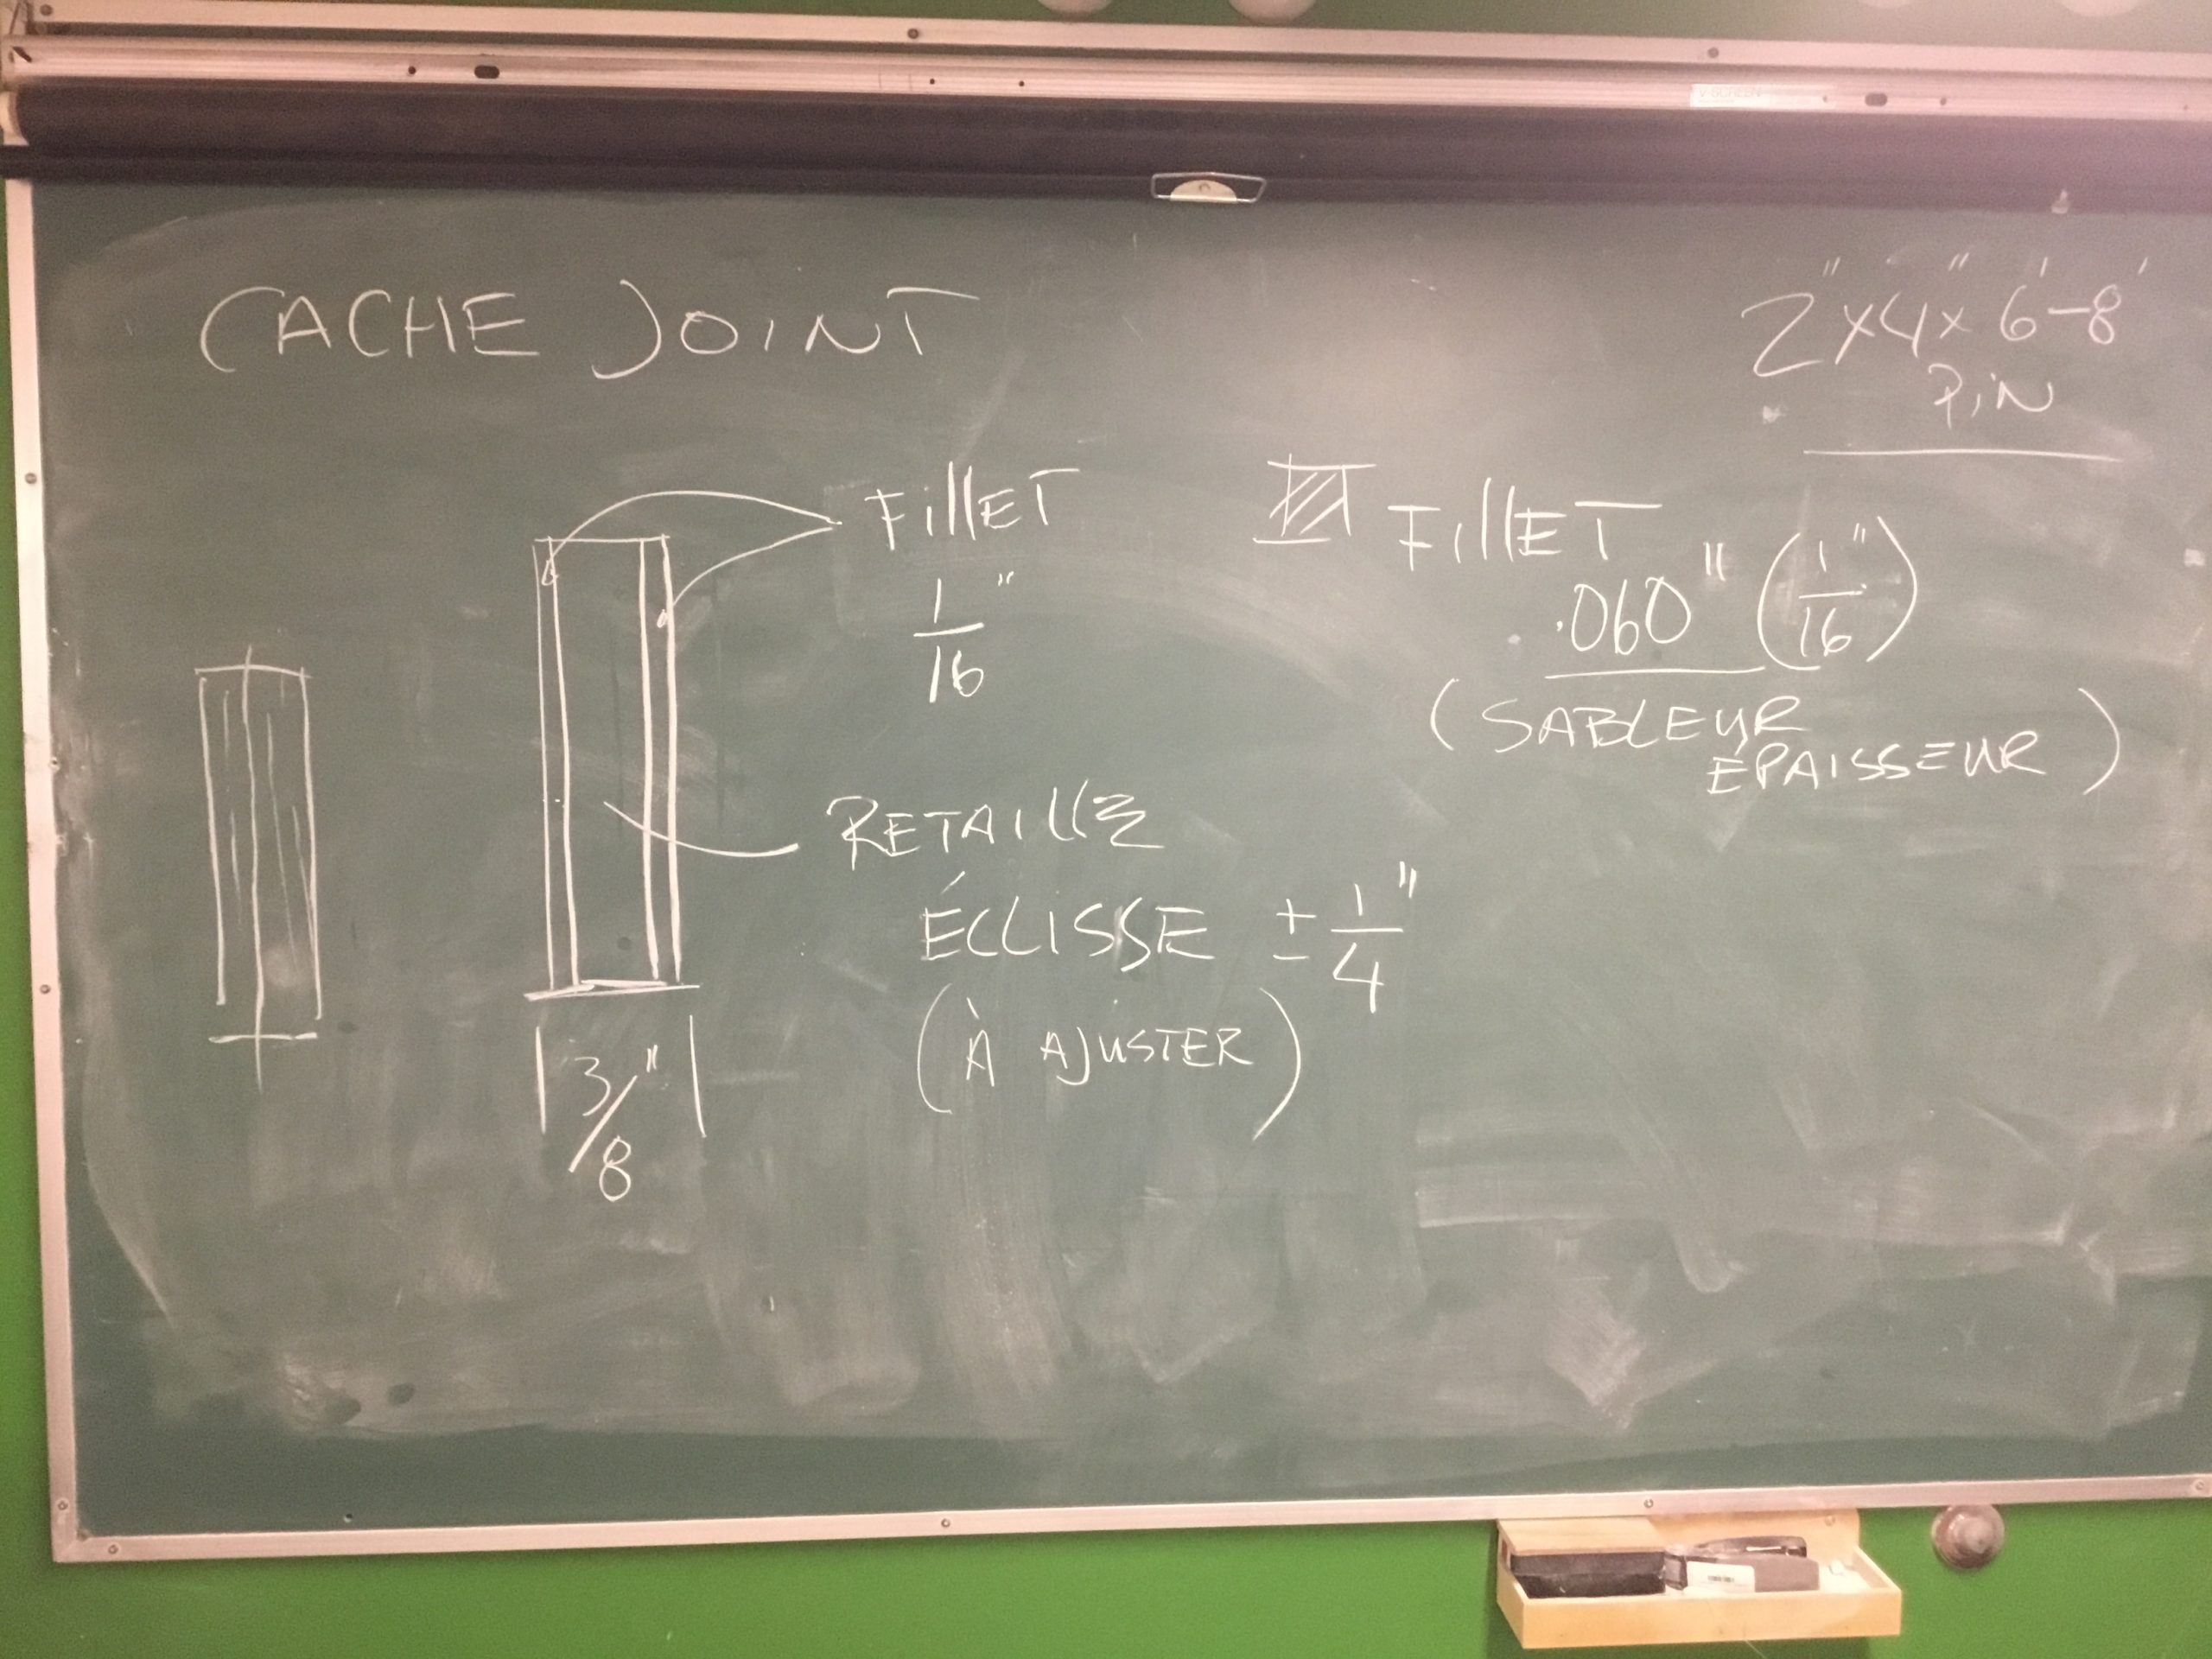 V-SCREEN
CACHE JOINT
2" x 4" x 6'-8'
PIN
FillET
1/16"
FillET
.060" (1/16")
(SABLEUR
ÉPAISSEUR)
RETAILLE
ÉCLISSE ± 1/4"
(À AJUSTER)
3/8"